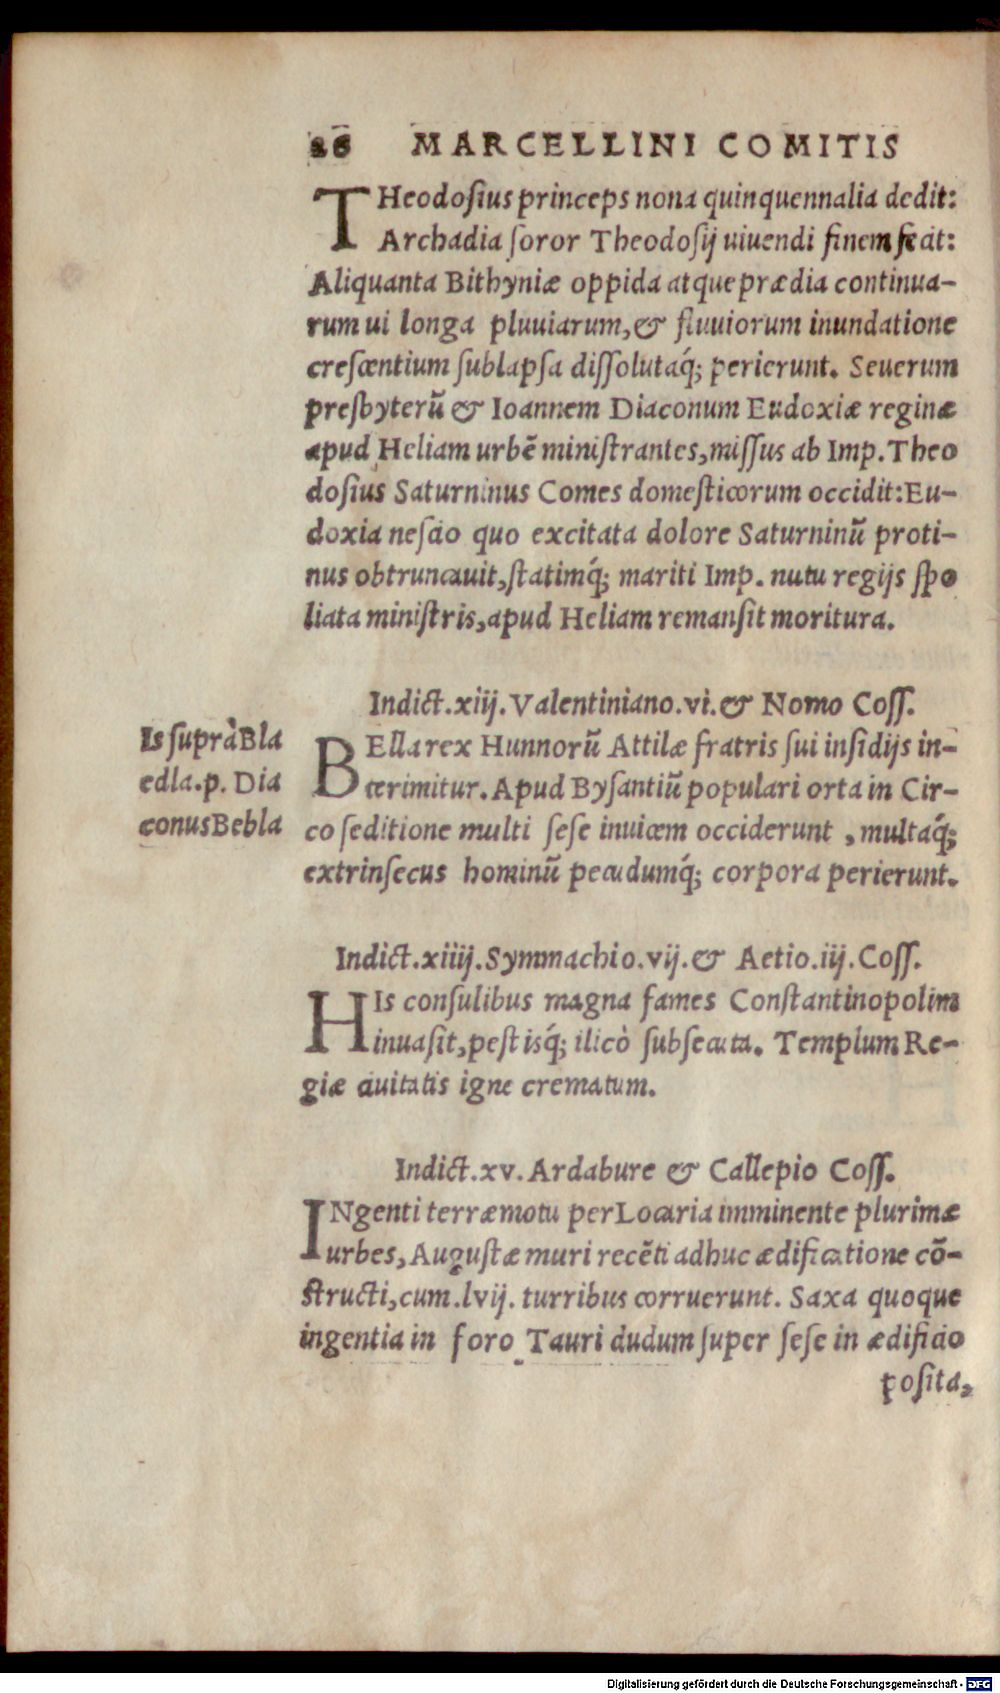 26 MARCELLINI COMITIS
THeodosius princeps nona quinquennalia dedit:
Archadia soror Theodosij uiuendi finem fecit:
Aliquanta Bithyniæ oppida atque prædia continua-
rum ui longa pluuiarum, & fluuiorum inundatione
crescentium sublapsa dissolutaq́; perierunt. Seuerum
presbyterū & Ioannem Diaconum Eudoxiæ reginæ
apud Heliam urbē ministrantes, missus ab Imp. Theo
dosius Saturninus Comes domesticorum occidit: Eu-
doxia nescio quo excitata dolore Saturninū proti-
nus obtruncauit, statimq́; mariti Imp. nutu regijs spo
liata ministris, apud Heliam remansit moritura.
Indict. xiij. Valentiniano. vi. & Nomo Coss.
Is supràBla
edla. p. Dia
conusBebla
BElla rex Hunnorū Attilæ fratris sui insidijs in-
terimitur. Apud Bysantiū populari orta in Cir-
co seditione multi sese inuicem occiderunt, multaq́;
extrinsecus hominū pecudumq́; corpora perierunt.
Indict. xiiij. Symmachio. vij. & Aetio. iij. Coss.
HIs consulibus magna fames Constantinopolim
inuasit, pestisq́; ilicò subsecuta. Templum Re-
giæ ciuitatis igne crematum.
Indict. xv. Ardabure & Callepio Coss.
INgenti terræmotu per Locaria imminente plurimæ
urbes, Augustæ muri recēti adhuc ædificatione cō-
structi, cum. lvij. turribus corruerunt. Saxa quoque
ingentia in foro Tauri dudum super sese in ædificio
posita,
Digitalisierung gefördert durch die Deutsche Forschungsgemeinschaft - DFG